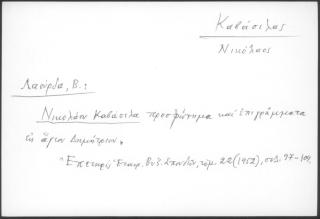 Καβάσιλας
Νικόλαος
Λαούρδα, Β.:
Νικολάου Καβάσιλα προσφώνημα και ἐπιγράμματα
εἰς ἅγιον Δημήτριον,
Ἐπετηρὶς Ἑταιρ. Βυζ. Σπουδῶν, τόμ. 22 (1952), σελ. 97-109